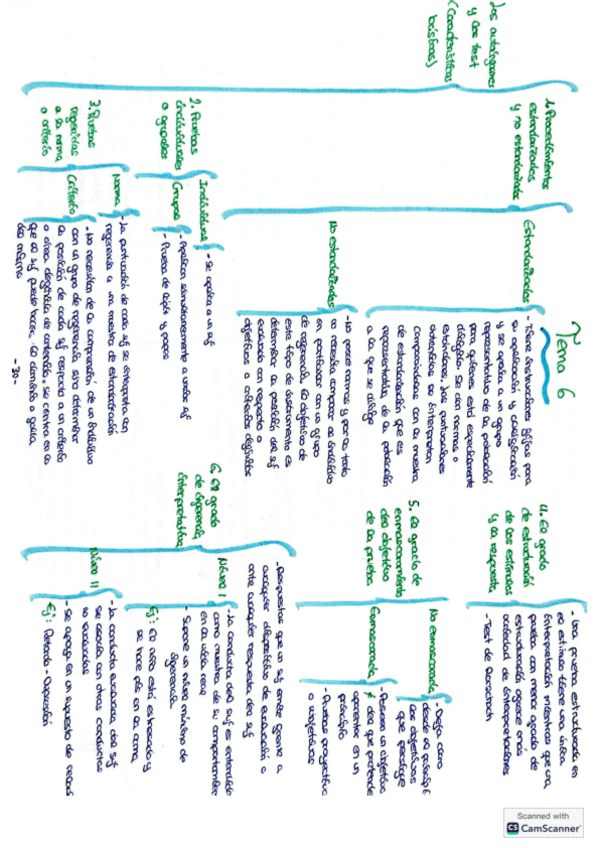 Tema 6
Los autoinformes
y los test
(Características
básicas)
1. Procedimientos
estandarizados
y no estandarizados
Estandarizados
- Tiene instrucciones fijas para
su aplicación y clasificación
y se aplica a un grupo
representativo de la población
para quienes está especialmente
dirigido. Se dan normas o
estándares. Las puntuaciones
obtenidas se interpretan
comparándolas con la muestra
de estandarización que es
representativa de la población
a la que se dirige
No estandarizados
- No posee normas y por lo tanto
no necesita comparar al individuo
en particular con un grupo
de referencia. El objetivo de
este tipo de instrumento es
determinar la posición del sujf
evaluado con respecto a
objetivos o criterios definidos
2. Pruebas
individuales
o grupales
Individual
- Se aplica a un sujf
Grupal
- Aplican simultáneamente a varios sujf
- Prueba de lápiz y papel
3. Pruebas
referidas
a la norma
o criterio
Norma
- La puntuación de cada sujf se interpreta con
referencia a una muestra de estandarización
Criterio
- No necesitan de la comparación de un individuo
con un grupo de referencia sino determinar
la posición de cada sujf respecto a un criterio
o área definida de contenido. Se centra en lo
que el sujf puede hacer, el dominio o grado
del mismo
4. El grado
de estructuración
de los estímulos
y la respuesta
- Una prueba estructurada en
el estímulo tiene una única
interpretación mientras que una
prueba con menor grado de
estructuración ofrece más
variedad de interpretaciones
- Test de Rorschach
5. El grado de
enmascaramiento
del objetivo
de la prueba
No enmascarada
- Deja claro
desde el principio
los objetivos
que persigue
Enmascarada
- Poseen un objetivo
≠ del que pretende
aparentar en un
principio
- Pruebas proyectivas
o subjetivas
6. El grado
de inferencia
interpretativa
- Respuestas que un sujf emite frente a
cualquier dispositivo de evaluación o
ante cualquier respuesta del sujf
Nivel I
- La conducta del sujf es entendida
como muestra de su comportamiento
en la vida real
- Supone un nivel mínimo de
inferencia
Ej: El niño está estresado y
se hace pis en la cama
Nivel II
- La conducta evaluada del sujf
se asocia con otras conductas
no evaluadas
- Se apoya en un supuesto de relación
Ej: Delgado - Depresión
- 30 -
Scanned with
CS CamScanner